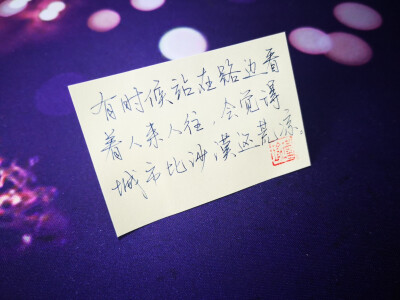 有时候站在路边看
着人来人往，会觉得
城市比沙漠还荒凉。